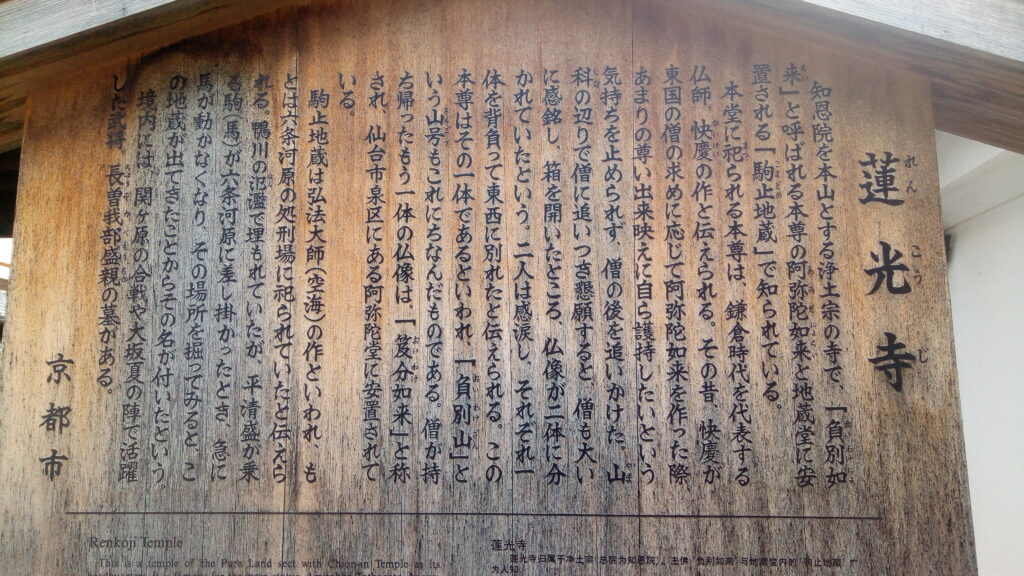 蓮光寺
れんこうじ
知恩院を本山とする浄土宗の寺で、「負別如
来」と呼ばれる本尊の阿弥陀如来と地蔵堂に安
置される「駒止地蔵」で知られている。
本堂に祀られる本尊は、鎌倉時代を代表する
仏師、快慶の作と伝えられる。その昔、快慶が
東国の僧の求めに応じて阿弥陀如来を作った際
あまりの尊い出来映えに自ら護持したいという
気持ちを止められず、僧の後を追いかけた。山
科の辺りで僧に追いつき懇願すると、僧も大い
に感銘し、箱を開いたところ、仏像が二体に分
かれていたという。二人は感涙し、それぞれ一
体を背負って東西に別れたと伝えられる。この
本尊はその一体であるといわれ、「負別山」と
いう山号もこれにちなんだものである。僧が持
ち帰ったもう一体の仏像は、「笈分如来」と称
され、仙台市泉区にある阿弥陀堂に安置されて
いる。
駒止地蔵は弘法大師(空海)の作といわれ、も
とは六条河原の処刑場に祀られていたと伝えら
れる。鴨川の氾濫で埋もれていたが、平清盛が乗
る駒(馬)が六条河原に差し掛かったとき、急に
馬が動かなくなり、その場所を掘ってみると、こ
の地蔵が出てきたことからその名が付いたという
境内には、関ヶ原の合戦や大坂夏の陣で活躍
した武将、長曽我部盛親の墓がある。
京都市
Renkoji Temple
This is a temple of the Pure Land sect with Chion-in Temple as its
莲光寺
莲光寺归属于净土宗(总院为知恩院)。主佛“负别如来”与地藏堂内的“驹止地藏”广
为人知。